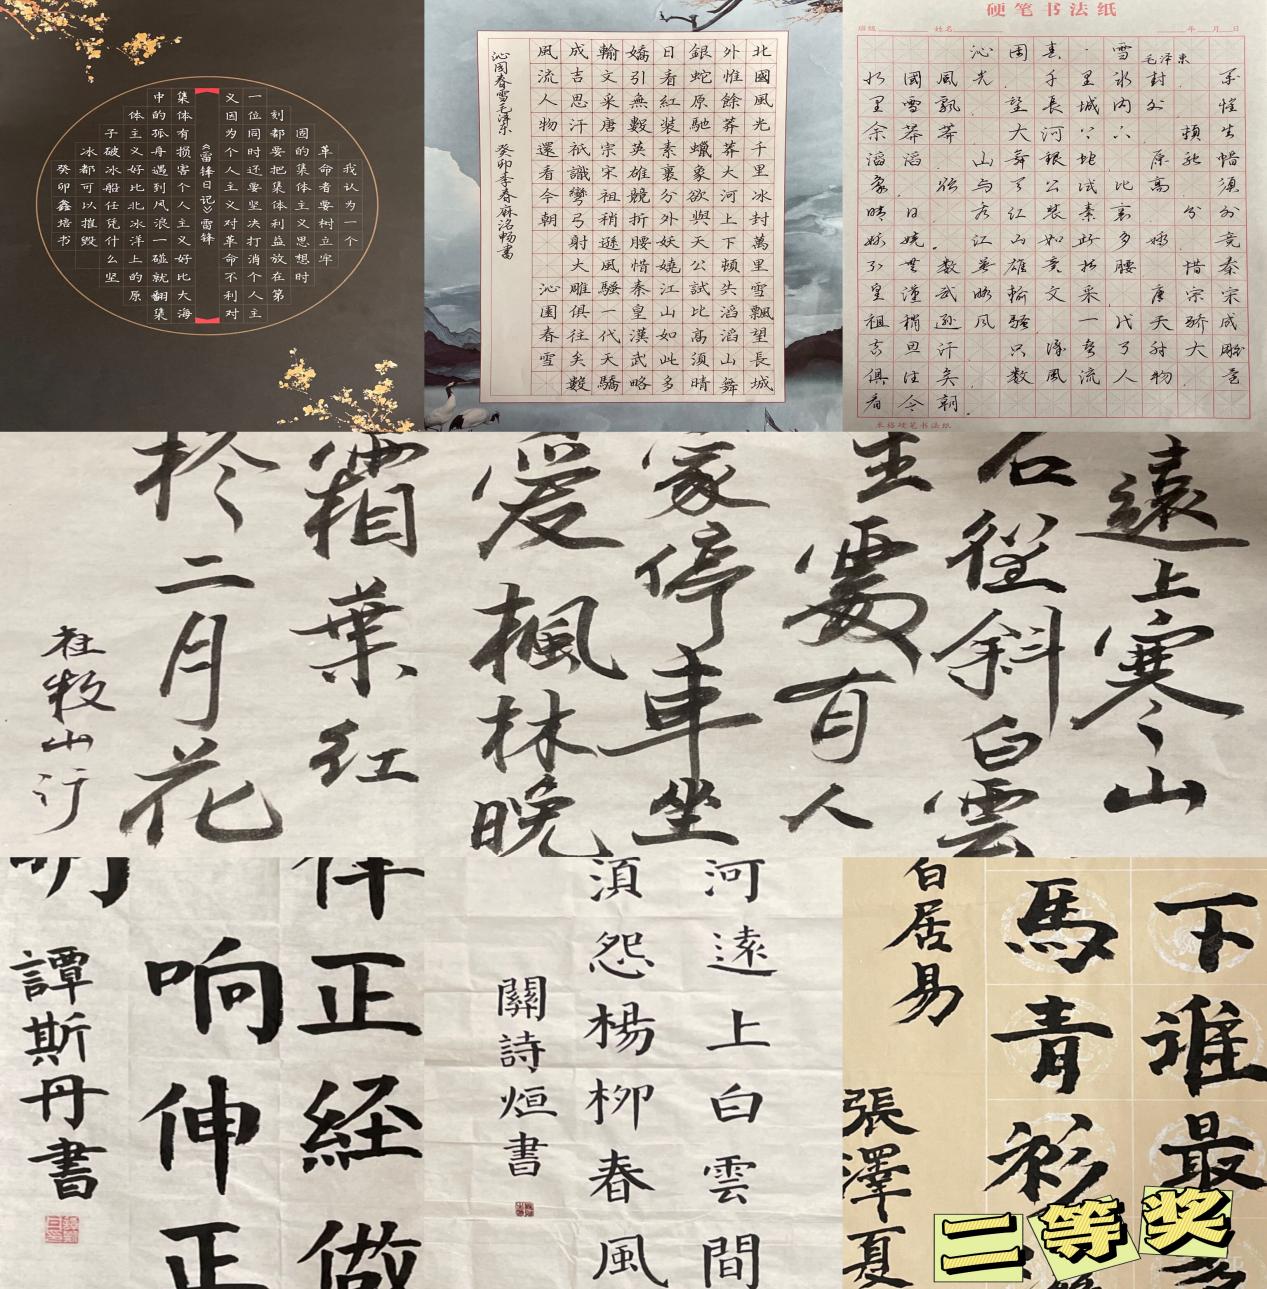 我认为一个
革命者要树立牢
固的集体主义思想时
刻都要把集体利益放在第
一位同时还要坚决打消个人主
义因为个人主义对革命不利对
《雷锋日记》雷锋
集体有损害个人主义好比大海
中的孤舟遇到风浪一碰就翻集
体主义好比北冰洋上的原
子破冰船任凭什么坚
冰都可以摧毁
癸卯鑫培书
北國風光千里冰封萬里雪飄望長城
外惟餘莽莽大河上下頓失滔滔山舞
銀蛇原馳蠟象欲與天公試比高須晴
日看紅裝素裹分外妖嬈江山如此多
嬌引無數英雄競折腰惜秦皇漢武略
輸文采唐宗宋祖稍遜風騷一代天驕
成吉思汗祇識彎弓射大雕俱往矣數
風流人物還看今朝 沁園春雪
沁園春雪毛澤東 癸卯季春麻洺暢書
硬笔书法纸
班级 姓名 年 月 日
沁园春·雪 毛泽东
国风光 千里冰封
里雪飘 望长城内外 惟
余莽莽 大河 顿失
滔滔 山舞银蛇 原驰蜡
象 欲与天公试比高 须
晴日 红装素裹 分外
妖娆.江山如此多娇 竞
无数英雄竞折腰 惜秦
皇汉武 略输文采 唐宗宋
祖稍逊风骚.一代天骄 成
吉思汗 只识 弓射大雕
俱往矣 数风流人物 还
看今朝.
遠上寒山
石徑斜白雲
生處有人
家停車坐
愛楓林晚
霜葉紅
於二月花
杜牧山行
正経做
响伸正
譚斯丹書
河遠上白雲間
須怨楊柳春風
關詩烜書
下誰最
馬青衫
白居易
張澤夏
二等奖